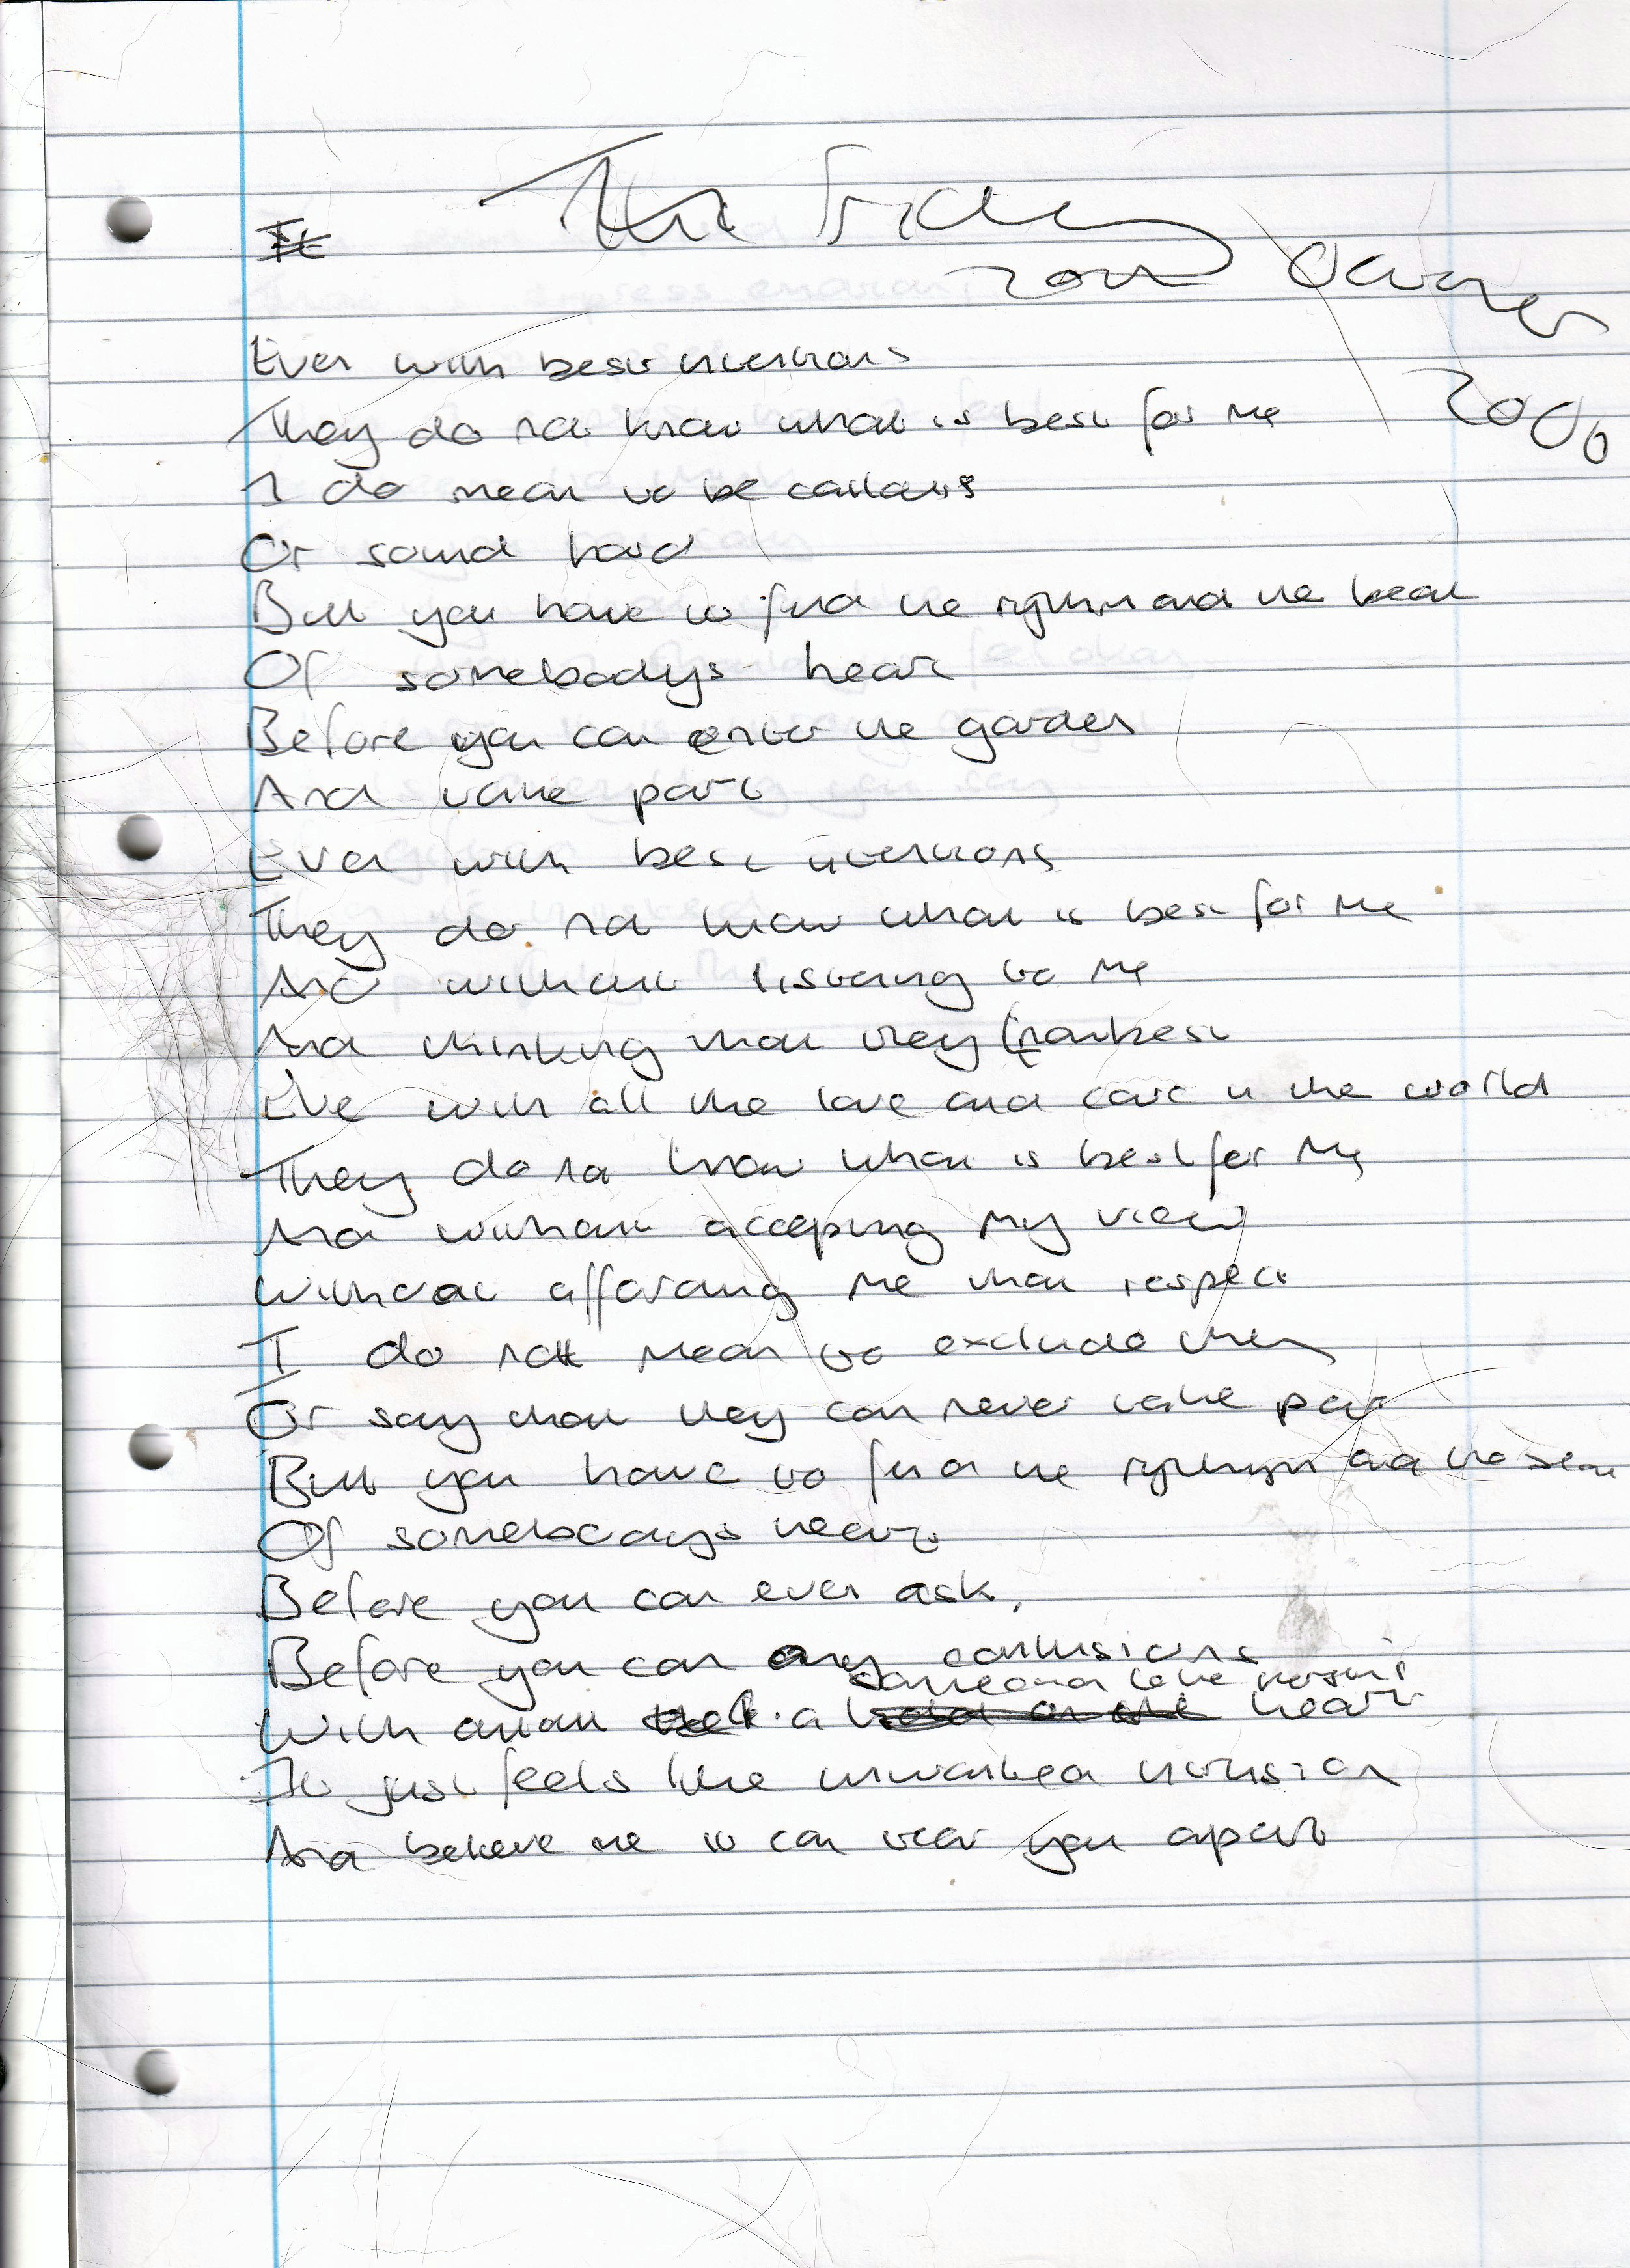 The Friday
20th October
2006
Even with best intentions
They do not know what is best for me
I do mean to be callous
Or sound hard
But you have to find the rythm and the beat
Of somebodys heart
Before you can enter the garden
And take part
Even with best intentions
They do not know what is best for me
And without listening to me
And thinking that they know best
Eve with all the love and care in the world
They do not know what is best for me
And without accepting my view
Without affording me that respect
I do not mean to exclude them
Or say that they can never take part
But you have to find the rythym and the beat
Of somebodys heart
Before you can even ask,
Before you can any conclusions
someone
With a heart
It just feels like unwanted intrusion
And believe me it can tear you apart